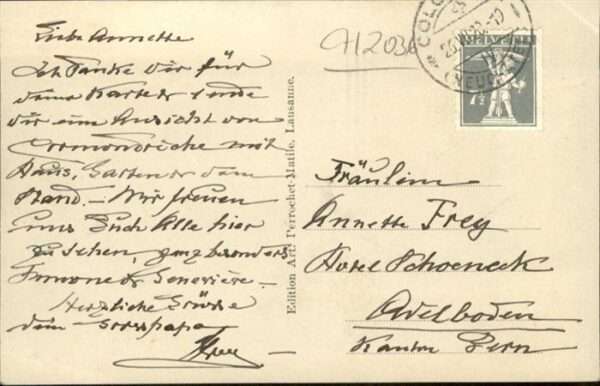 Liebe Annette
Ich danke dir für
deine Karte & sende
dir eine Ansicht von
Cormondrèche mit
Haus, Garten & dem
Rand. – Wir freuen
uns Euch Alle hier
zu sehen, ganz besonders
Simone & Geneviève. –
Herzliche Grüsse
dein Grosspapa
Frey
H2036
Edition Art. Perrochet-Matile, Lausanne.
COLO
(NEUCHÂT
HELVETIA
7½
Fräulein
Annette Frey
Hotel Schoeneck
Adelboden
Kanton Bern